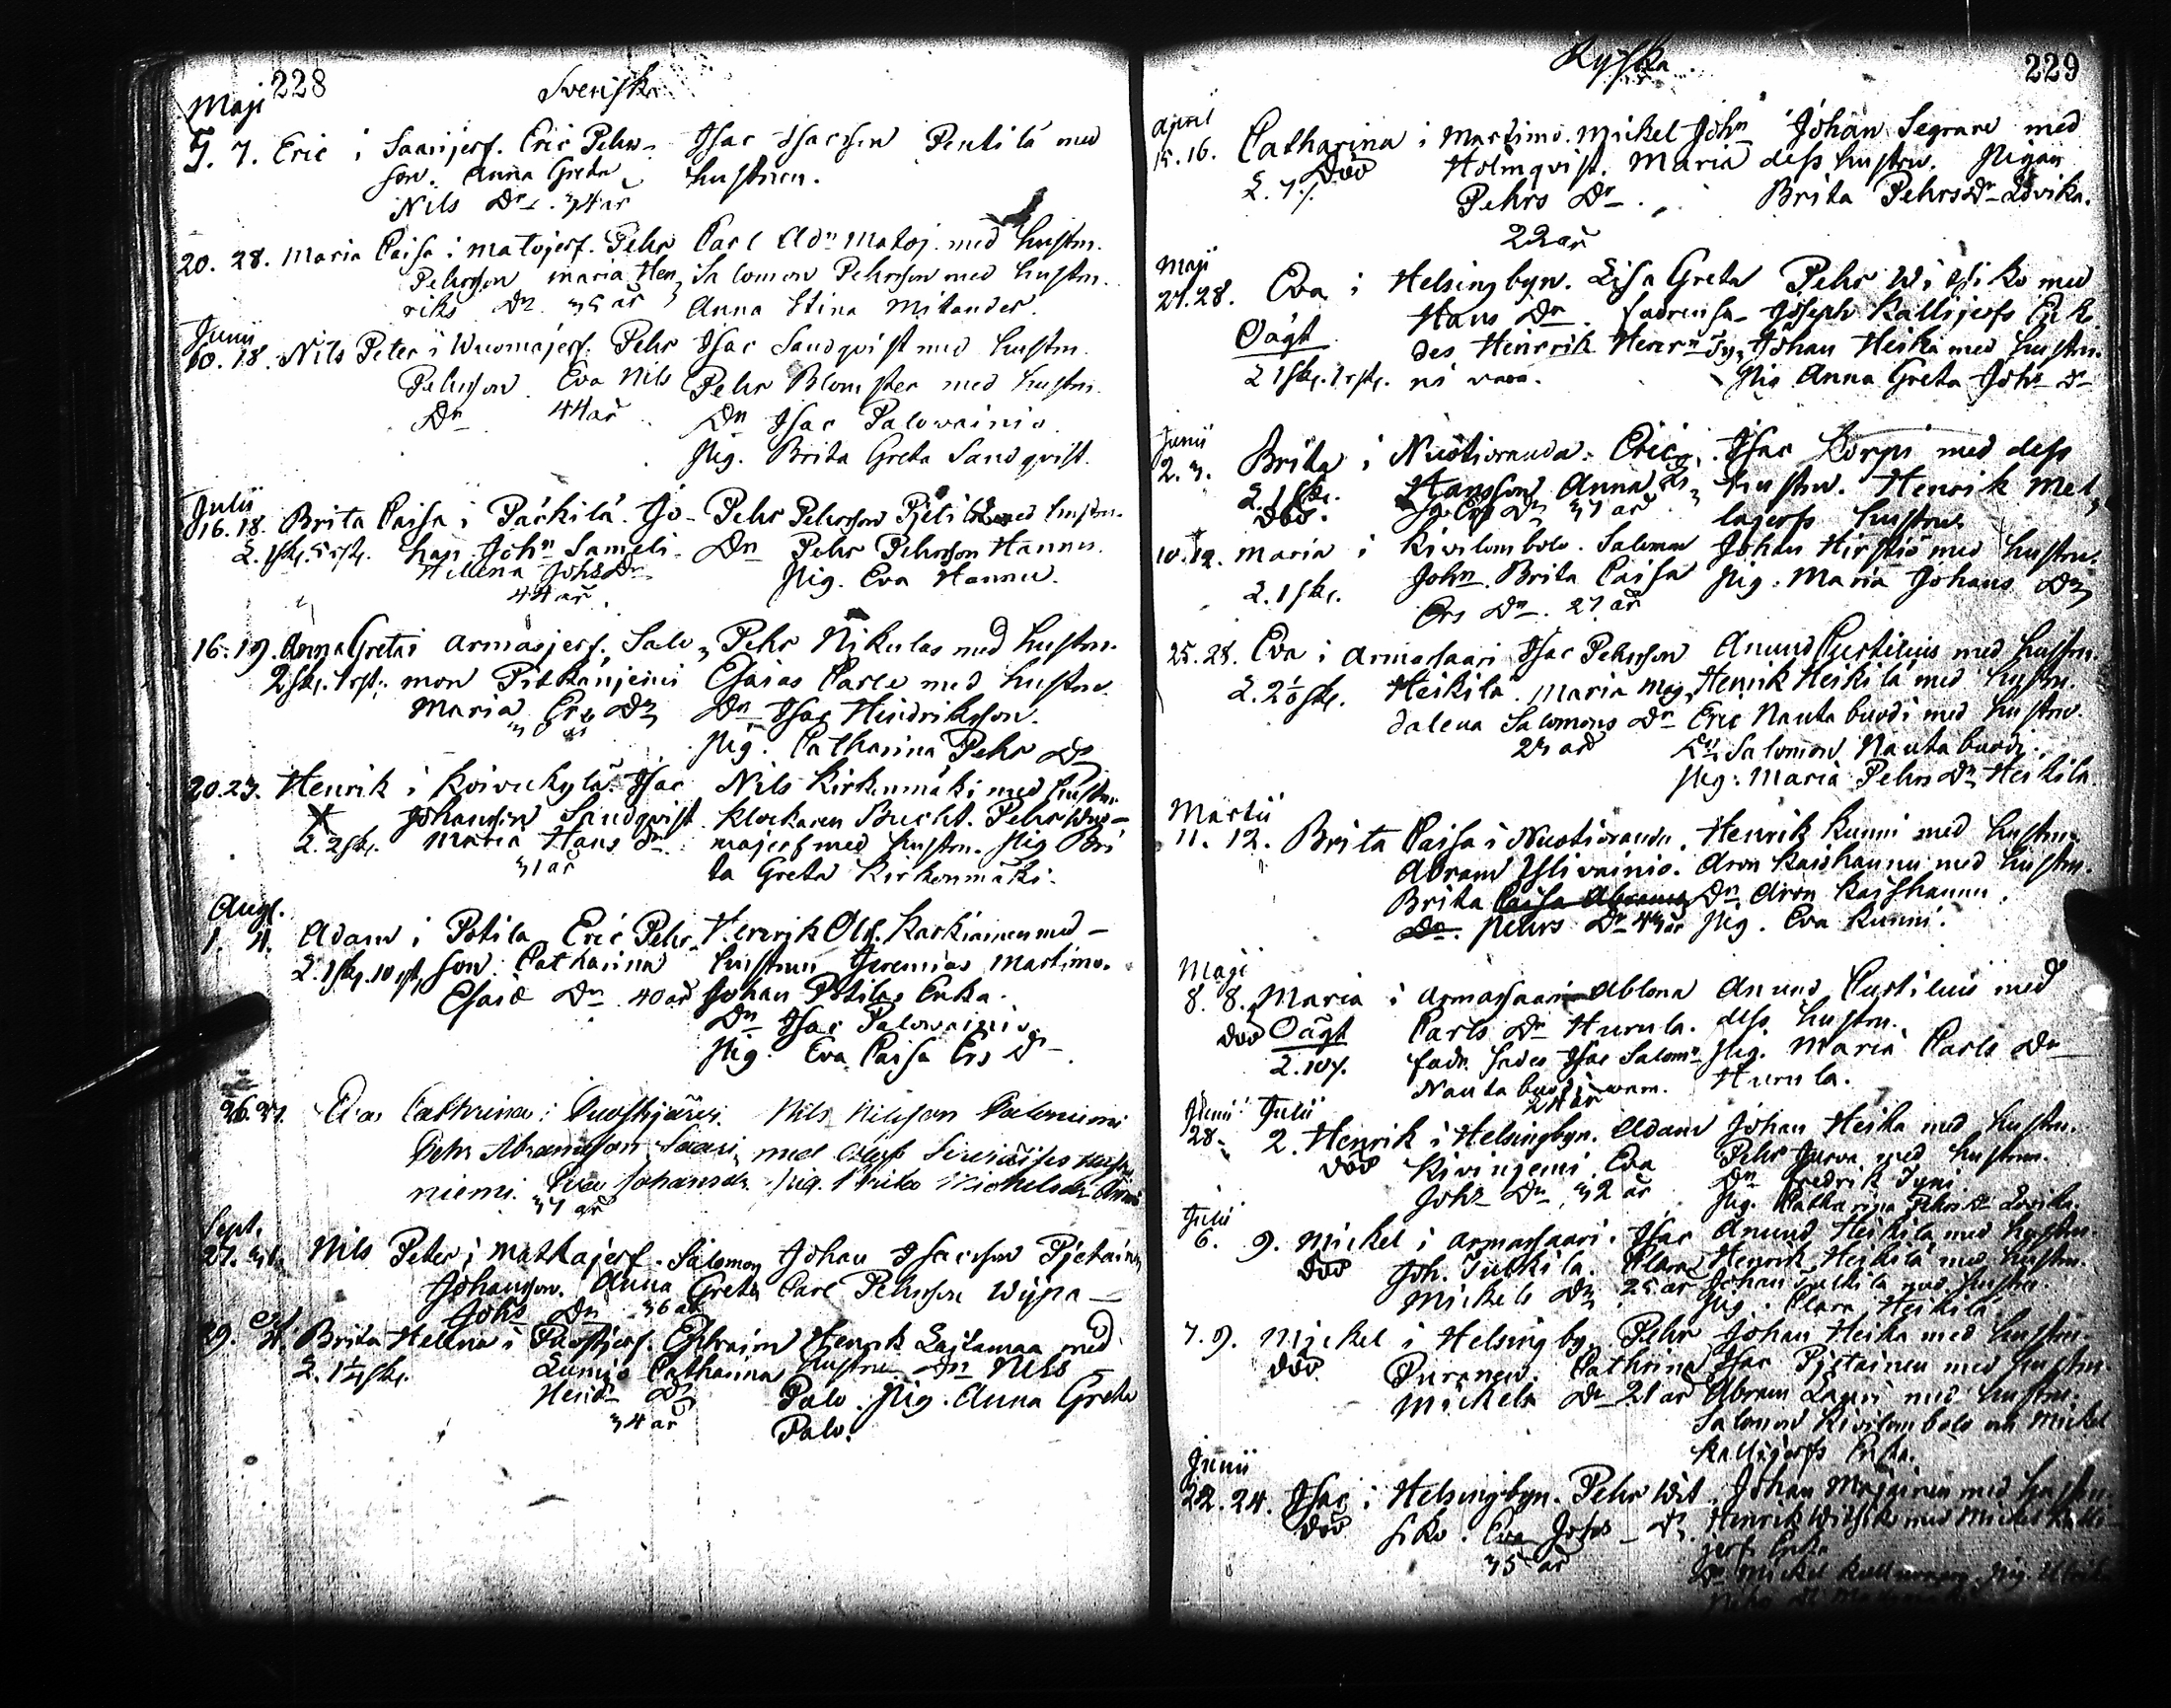 228
Svenska
Maji
5. 7. Eric i Saarijerf. Eric Pehrs-
son. Anna Greta
Nils Dr. 34 år
Isac Isacsson Pentilä med
hustrun.
20. 28. Maria Caisa i Matojerf. Pehr
Pehrsson Maria Hen-
riks Dr. 35 år
Carl Adn Matoj. med hustru.
Salomon Pehrsson med hustru.
Anna Stina Mitander.
Junii
10. 18. Nils Peter i Wuomajerf. Pehr
Pehrsson. Eva Nils
Dr 44 år
Isac Sandqvist med hustru.
Pehr Blomster med hustru.
Dn Isac Palovainio.
Pig. Brita Greta Sandqvist.
Julii
16. 18. Brita Caisa i Päckilä. Jo-
2. 1 sk. 5 rst. han John Sameli
Helena Johs Dr
44 år.
Pehr Pehrsson Pjeti med hustru.
Dn Pehr Pehrsson Hannu.
Pig. Eva Hannu.
16. 19. Anna Greta i Armasjerf. Salo-
2 sk. 1 rst. mon Pitkänjemi
Maria Ers Dr
Pehr Nikulas med hustru.
Esaias Carle med hustru.
Dn Isac Hindriksson.
Pig. Catharina Pehr Dr
20. 23. Henrik i Koivukylä. Isac
Johansson Sandqvist
2. 2 sk. Maria Hans Dr.
31 år
Nils Kirkenmäki med hustru
Klockaren Bucht. Pehr Wuo-
majerf med hustru. Pig Bri
ta Greta Kirkenmäki.
Aug.
1. 4. Adam i Potila Eric Pehr-
2. 1 sk. 10 rst. son Catharina
Esaiæ Dr. 40 år
Henrik Olk. Karkiainen med
hustrun Jeremias Martimo.
Johan Potilas Enka.
Dn Isac Palovainio.
Pig. Eva Caisa Ers Dr
26. 27. Eva Cathrina i Puostijärvi.
Pehr Abramsson Saari-
niemi. Eva Johansdr.
37 år
Nils Nilsson Paloniemi
med
Pig. Ulrika Michelsdr
Sept.
27. Nils Peter i Matkajerf. Salomon
Johansson. Anna Greta
Johs Dr 36 år
Johan Isacsson Pjetainen
Carl Pehrsson Wypa
29. 4. Brita Helena i Puostijerf. Ephraim
2. 1 1/2 sk. Lumijo Catharina
Henr. Dr
34 år
Henrik Lajtamaa med
hustru. Dn Nils
Palo. Pig. Anna Greta
Palo.
229
Ryska
April
15. 16. Catharina i Martimo. Mickel John
död Holmqvist. Maria
Pehrs Dr
22 år
Johan Segrare med
dess hustru. Pigan
Brita Pehrs Dr Lovika.
Maji
27. 28. Eva i Helsingbyn. Lisa Greta
Hans Dr. fadren sa-
Oägt des Henrik Henrn Ty-
2 1 sk. 1 rst. ni vara.
Pehr Witsiko med
Joseph Kallijerfs Enk.
Johan Heika med hustru.
Pig Anna Greta Johs Dr
Junii
2. 3. Brita i Nuotioranda. Eric
2. 1 sk. Hansson Anna Li-
död. sa Ers Dr 37 år
Isac Korpi med dess
hustru. Henrik Mel-
lagerfs hustru.
10. 12. Maria i Kivilombolo. Salomon
2. 1 sk. John. Brita Caisa
Ers Dr. 27 år
Johan Hirstiö med hustru.
Pig: Maria Johans Dr
25. 28. Eva i Armassaari Isac Pehrsson
2. 2 1/2 sk. Heikilä. Maria Mag-
dalena Salomons Dr
23 år
Anund Curtilius med hustru.
Henrik Heikilä med hustru.
Eric Nautabuodi med hustru.
Dn Salomon Nautabuodi.
Pig: Maria Pehrs Dr Heikilä.
Martii
11. 12. Brita Caisa i Nuotioranda.
Abram Ylivainio.
Brita Caisa Abrams
Dr. Pehrs Dr 43 år
Henrik Kunni med hustru.
Aron Kaishannu med hustru.
Dn Aron Kaishannu.
Pig. Eva Kunni.
Maji
8. 8. Maria i Armassaari Ablona
död Oägt Carls Dr Hurula.
2. 10 rst. fadr. sades Isac Salomn
Nautabuodi vara.
24 år
Anund Curtilius med
dess hustru.
Pig. Maria Carls Dr
Hurula.
Junii Julii
28. 2. Henrik i Helsingbyn. Adam
död Kiviniemi Eva
Johs Dr. 32 år
Johan Heika med hustru.
Pehr Jurva med hustrun.
Dn Fredrik Tyni.
Pig. Catharina Pehrs Dr Lovika.
Julii
6. 9. Mickel i Armassaari. Isac
död Joh. Tulkila. Clara
Mickels Dr 25 år
Anund Heikilä med hustru.
Henrik Heikilä med hustru.
Johan Tulkila med hustru.
Pig. Clara Heikilä.
7. 9. Mickel i Helsingby. Pehr
död. Puranen. Cathrina
Mickels Dr 21 år
Johan Heika med hustru.
Isac Pjetainen med hustru
Abram Lauri med hustru.
Salomon Kivilombolo och Mickel
Kallijerfs Enka.
Junii
22. 24. Isac i Helsingbyn. Pehr Wit
död siko. Eva Johs Dr
35 år
Johan Majainen med hustru.
Henrik Witsiko med Mickel Kalli-
jerfs Enka
Dn Mickel